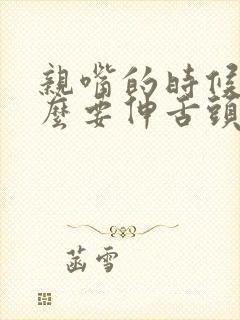 親嘴的時候
麼要伸舌頭
菡雪